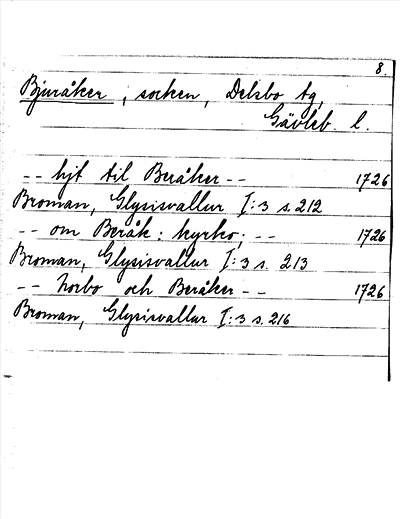 8.
Bjuråker, socken, Delsbo tg,
Gävleb. l.
-- hjt til Beråker -- 1726
Broman, Glysisvallur I:3 s. 212
-- om Beråk: kyrko; -- 1726
Broman, Glysisvallur I:3 s. 213
-- Norbo och Beråker -- 1726
Broman, Glysisvallur I:3 s. 216